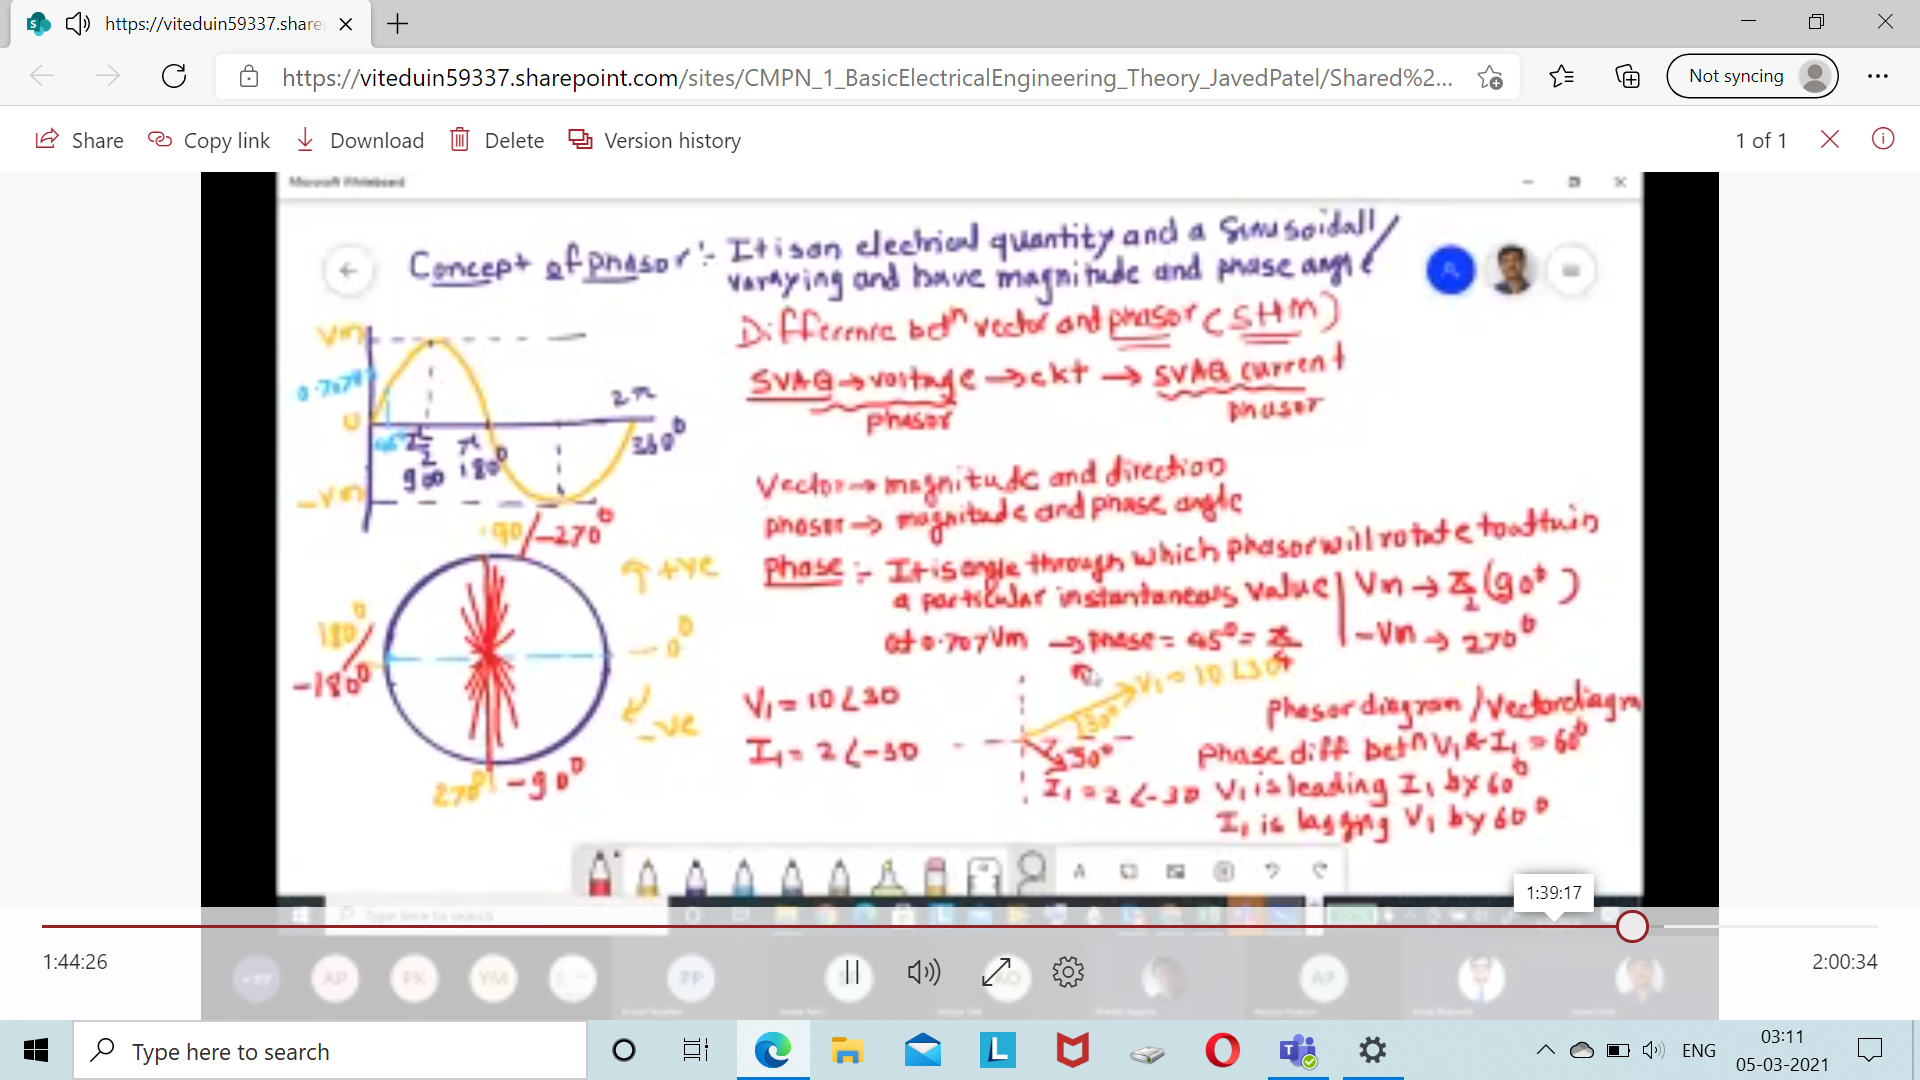 https://viteduin59337.share
https://viteduin59337.sharepoint.com/sites/CMPN_1_BasicElectricalEngineering_Theory_JavedPatel/Shared%2...
Not syncing
Share
Copy link
Download
Delete
Version history
1 of 1
Microsoft Whiteboard
Concept of phasor :- It is an electrical quantity and a sinusoidally
varying and have magnitude and phase angle
Difference betn vector and phasor (SHM)
SVAQ → voltage → ckt → SVAQ current
phasor
phasor
Vm
0.707V
0
-Vm
45°
π/2
90°
π
180°
2π
360°
Vector → magnitude and direction
phasor → magnitude and phase angle
Phase :- It is angle through which phasor will rotate to attain
a particular instantaneous value
at 0.707Vm → phase = 45° = π/4
Vm → π/2 (90°)
-Vm → 270°
90/-270°
+ve
180°/-180°
0°
-ve
270° -90°
V₁ = 10∠30
I₁ = 2∠-30
V₁ = 10∠30°
30°
30°
I₁ = 2∠-30
Phasor diagram / Vector diagram
Phase diff betn V₁ & I₁ = 60°
V₁ is leading I₁ by 60°
I₁ is lagging V₁ by 60°
Type here to search
1:39:17
1:44:26
2:00:34
+77
AP
PK
YM
PP
AP
Type here to search
ENG
03:11
05-03-2021